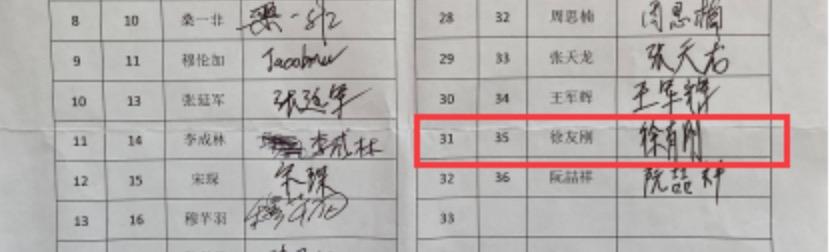 8 10 桑一非 桑一非
9 11 穆伦加 Jacob
10 13 张延军 张延军
11 14 李成林 李成林
12 15 宋琛 宋琛
13 16 穆芊羽
28 32 周思楠 周思楠
29 33 张天龙 张天龙
30 34 王军辉 王军辉
31 35 徐友刚 徐有刚
32 36 阮喆祥 阮喆祥
33